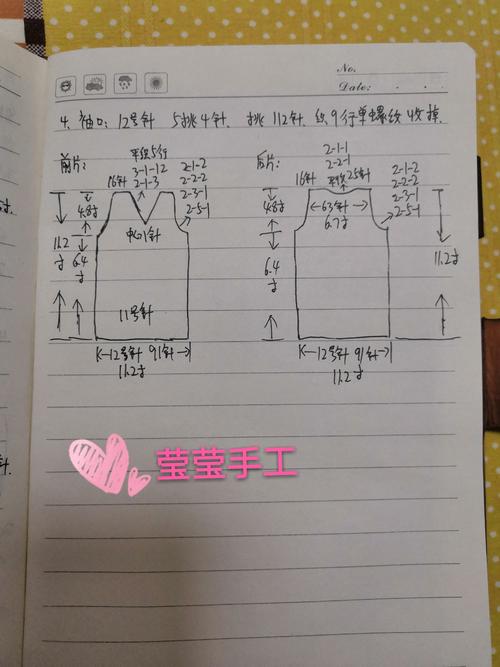 No.
Date:
4、袖口：12号针 5挑4针、挑112针、织9行单螺纹收掉.
前片：
平织5行
3-1-12
2-1-3
16针
2-1-2
2-2-2
2-3-1
2-5-1
4.8寸
中心1针
11.2寸
6.4寸
11号针
12号针 91针
11.2寸
后片：
2-1-1
2-2-1
平织25针
16针
2-1-2
2-2-2
2-3-1
2-5-1
4.8寸
63针
6.7寸
6.4寸
11.2寸
12号针 91针
11.2寸
针.
莹莹手工